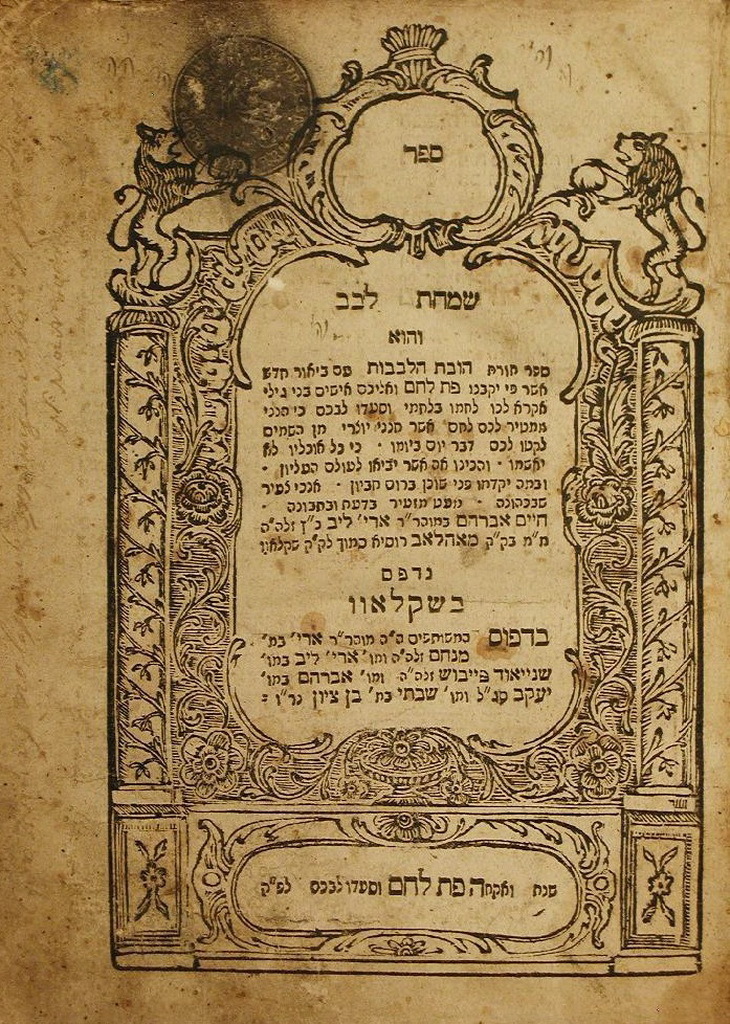 ספר
שמחת לבב
והוא
ספר תורת חובת הלבבות עם ביאור חדש
אשר פי יקבנו פת לחם ואליכם אישים בני גילי
אקרא לכו לחמו בלחמי וסעדו לבכם כי הנני
ממטיר לכם לחם אשר הנני יוצרי מן השמים
לקטו לכם דבר יום ביומו · כי כל אוכליו לא
יאשמו · והכינו את אשר יביאו לעולם העליון ·
ובמה יקדמו פני שוכן ברום חביון · אנכי צעיר
שבכהונה · מעט מזעיר בדעת ובתבונה ·
חיים אברהם במוהר״ר ארי׳ ליב כ״ץ זלה״ה
מ״מ בק״ק מאהלאב רוסיא סמוך לק״ק שקלאוו
נדפס
בשקלאוו
בדפוס המשותפים ה״ה מוהר״ר ארי׳ במ׳
מנחם זלה״ה ומו׳ ארי׳ ליב במו׳
שניאור פייבוש זלה״ה ומו׳ אברהם במו׳
יעקב סג״ל ומו׳ שבתי במ׳ בן ציון נר״ו :
שנת ואקחה פת לחם וסעדו לבכם לפ״ק